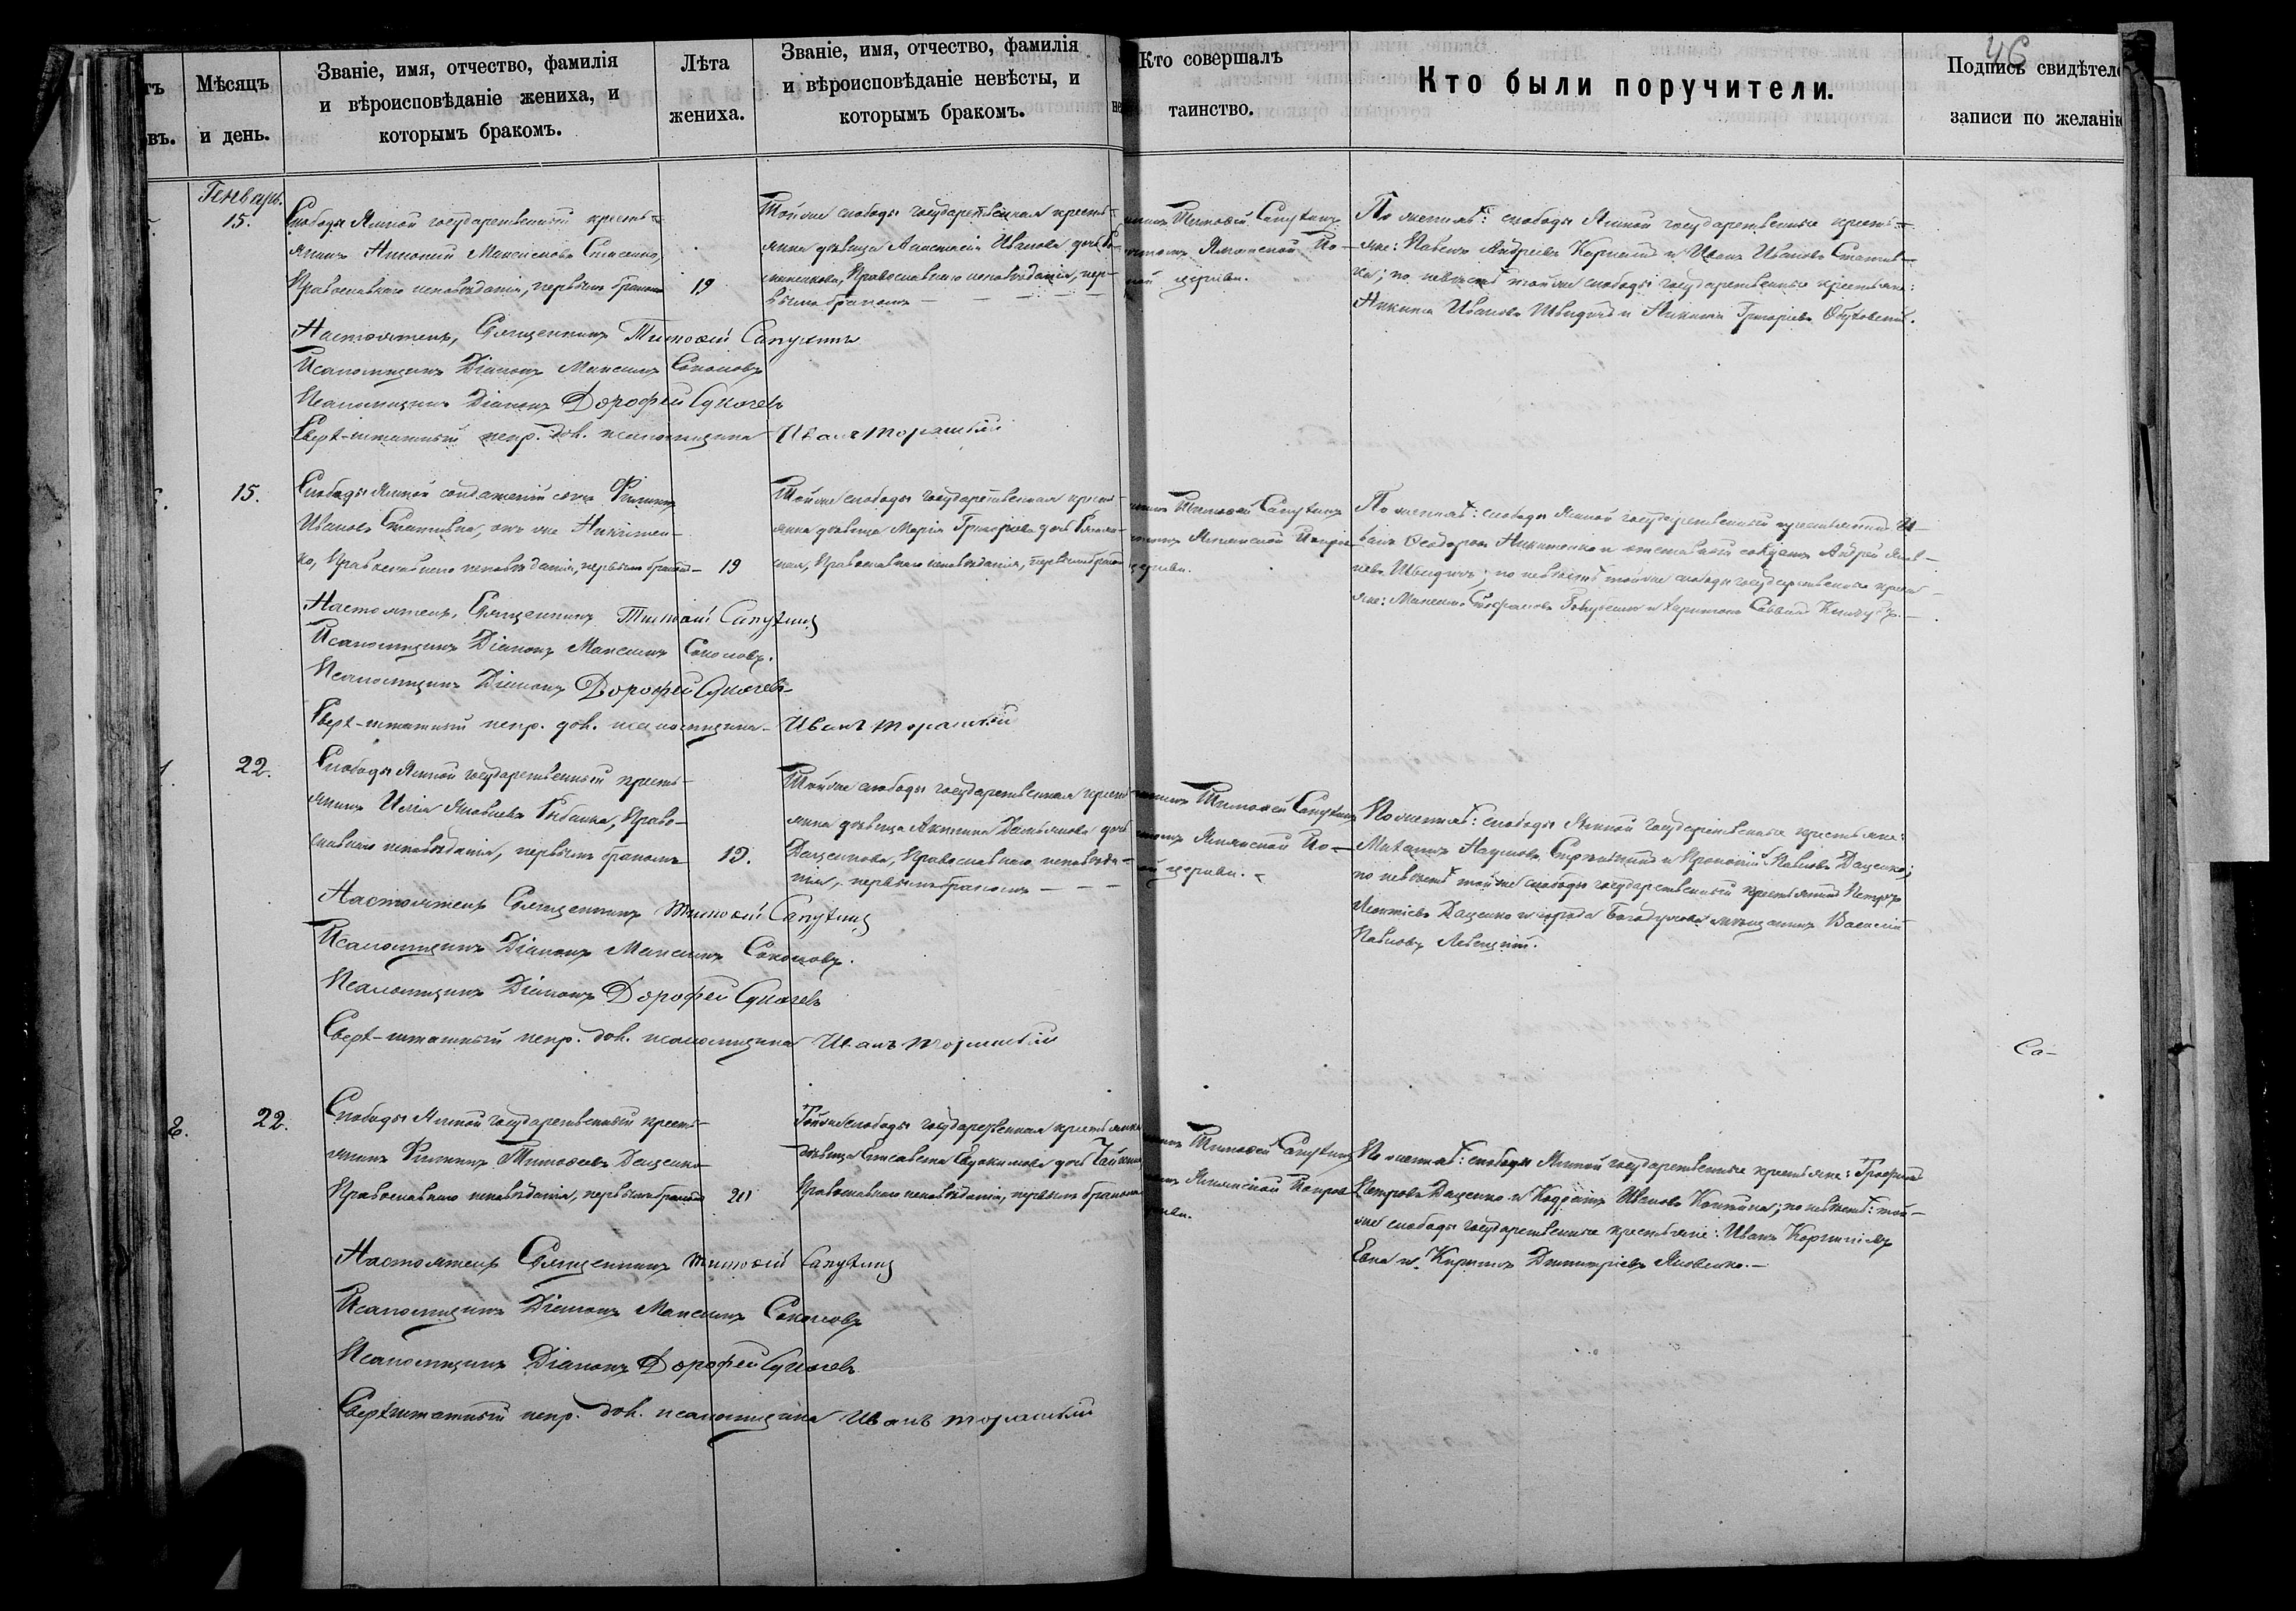 46
Мѣсяцъ
и день.
Званіе, имя, отчество, фамилія
и вѣроисповѣданіе жениха, и
которымъ бракомъ.
Лѣта
жениха.
Званіе, имя, отчество, фамилія
и вѣроисповѣданіе невѣсты, и
которымъ бракомъ.
Кто совершалъ
таинство.
Кто были поручители.
Подпись свидѣтеле
записи по желанію
Генварь.
15.
Слободы Ямной государственный кресть-
янинъ Максимовъ
Православнаго исповѣданія, первымъ бракомъ
19
Той же слободы государственная кресть-
янка дѣвица Анастасія Иванова дочь
Православнаго исповѣданія, пер-
вымъ бракомъ
Тимоѳей Сапухинъ
Ямнской По-
церкви.
По женихѣ: слободы Ямной государственные кресть-
яне: Павелъ Андреевъ и Иванъ Ивановъ
по невѣстѣ той же слободы государственные крестьяне:
Никита Ивановъ Швидичъ и Никита Григоріевъ Обуховскій.
Настоятель, Священникъ Тимоѳей Сапухинъ
Псаломщикъ Діаконъ Максимъ Соколовъ
Псаломщикъ Діаконъ Дорофей Сукачевъ
Сверх-штатный испр. дол. псаломщика Иванъ Торанскій
15.
Слободы Ямной солдатскій сынъ Филиппъ
Ивановъ онъ же Никитен-
ко, Православнаго исповѣданія, первымъ бракомъ
19
Той же слободы государственная кресть-
янка дѣвица Марія Григоріева дочь
Православнаго исповѣданія, первымъ бракомъ
Тимоѳей Сапухинъ
Ямнской Покров
церкви.
По женихѣ: слободы Ямной государственный крестьянинъ И-
ванъ Ѳеодоровъ Никитенко и отставной солдатъ Андрей Яков-
левъ Швидичъ; по невѣстѣ той же слободы государственные кресть-
яне: Максимъ Стефановъ Голубенко и Харитонъ Саввинъ
Настоятель, Священникъ Тимоѳей Сапухинъ
Псаломщикъ Діаконъ Максимъ Соколовъ.
Псаломщикъ Діаконъ Дорофей Сукачевъ
Сверх-штатный испр. дол. псаломщика Иванъ Торанскій
22.
Слободы Ямной государственный кресть-
янинъ Илія Яковлевъ Рыбалка, Право-
славнаго исповѣданія, первымъ бракомъ
19.
Той же слободы государственная кресть
янка дѣвица Акилина Демьянова дочь
Даценкова, Православнаго исповѣда-
нія, первымъ бракомъ
Тимоѳей Сапухинъ
Ямнской По-
церкви.
По женихѣ: слободы Ямной государственные крестьяне:
Наумовъ и Прокопій Павловъ Даценко;
по невѣстѣ той же слободы государственный крестьянинъ Петръ
Леонтіевъ Даценко и города Богодухова мѣщанинъ Василій
Павловъ Левицкій.
Настоятель Священникъ Тимоѳей Сапухинъ
Псаломщикъ Діаконъ Максимъ Соколовъ.
Псаломщикъ Діаконъ Дорофей Сукачевъ
Сверх-штатный испр. дол. псаломщика Иванъ Торанскій
Со-
22.
Слободы Ямной государственный кресть-
янинъ Филиппъ Тимоѳеевъ Даценко
Православнаго исповѣданія, первымъ бракомъ
20
Той же слободы государственная крестьянка
дѣвица Елисавета Евдокимова дочь
Православнаго исповѣданія, первымъ бракомъ
Тимоѳей Сапухинъ
Ямнской Покров
По женихѣ: слободы Ямной государственные крестьяне: Трофимъ
Петровъ Даценко и Кодратъ Ивановъ по невѣстѣ: той-
же слободы государственные крестьяне: Иванъ Корниліевъ
и Кириллъ Димитріевъ Яковенко.
Настоятель Священникъ Тимоѳей Сапухинъ
Псаломщикъ Діаконъ Максимъ Соколовъ
Псаломщикъ Діаконъ Дорофей Сукачевъ
Сверхштатный испр. дол. псаломщика Иванъ Торанскій